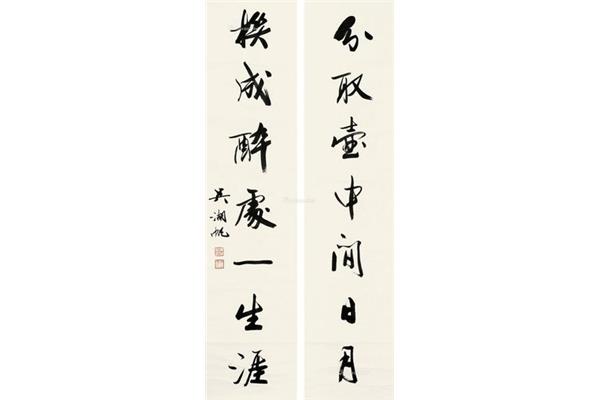 分取壺中間日月
成醉處一生涯
吳湖帆